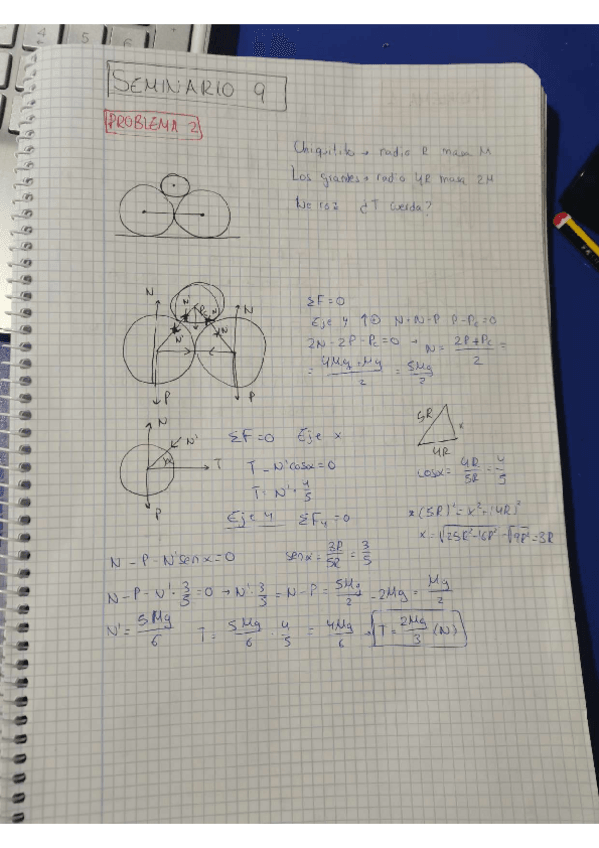 SEMINARIO 9
PROBLEMA 2
Chiquitito → radio R masa M
Los grandes → radio 4R masa 2M
No roz ¿T cuerda?
N N
N N
P P
ΣF=0
Eje y ↑⊕ N+N-P-P-Pc=0
2N-2P-Pc=0 → N = 2P+Pc / 2 =
= 4Mg+Mg / 2 = 5Mg / 2
N
N'
α
T
P
5R x
4R
ΣF=0 Eje x
T - N'cosα=0
T = N' · 4/5
Eje y ΣFy=0
cosα = 4R/5R = 4/5
* (5R)² = x² + (4R)²
x = √25R²-16R² = √9R² = 3R
N - P - N'senα=0 senα = 3R/5R = 3/5
N - P - N' · 3/5 = 0 → N' · 3/5 = N - P = 5Mg/2 - 2Mg = Mg/2
N' = 5Mg/6 T = 5Mg/6 · 4/5 = 4Mg/6 → T = 2Mg/3 (N)